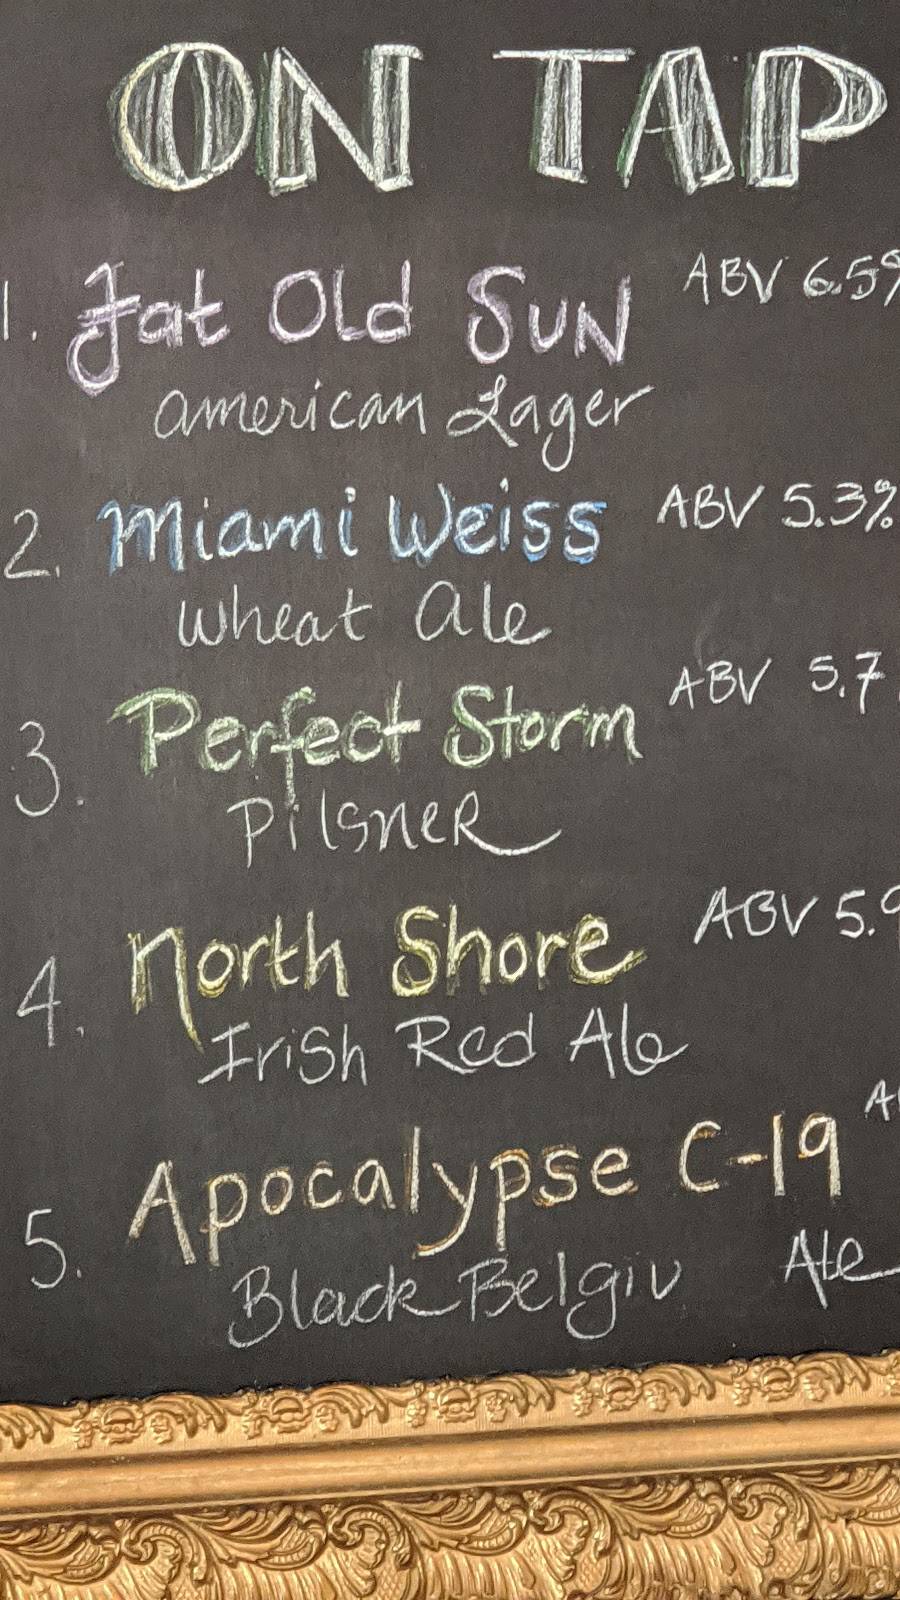 ON TAP
1. Fat Old Sun ABV 6.5%
American Lager
2. Miami Weiss ABV 5.3%
Wheat Ale
3. Perfect Storm ABV 5.7
Pilsner
4. North Shore ABV 5.9
Irish Red Ale
5. Apocalypse C-19
Black Belgiu Ale